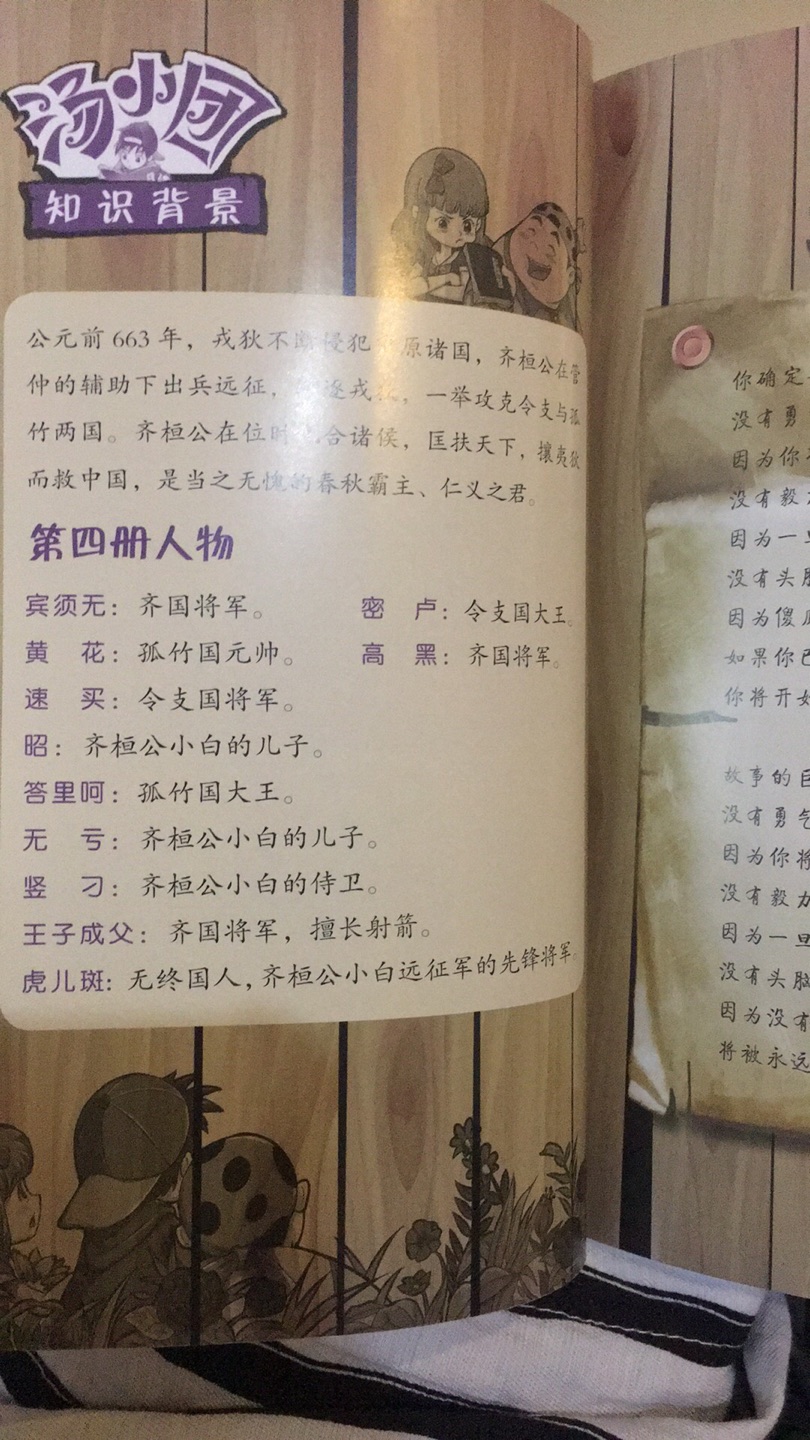 汤小团
知识背景
公元前 663 年，戎狄不断侵犯 原诸国，齐桓公在管
仲的辅助下出兵远征， 逐戎 ，一举攻克令支与孤
竹两国。齐桓公在位时 合诸侯，匡扶天下，攘夷狄
而救中国，是当之无愧的春秋霸主、仁义之君。
第四册人物
宾须无：齐国将军。 密 卢：令支国大王。
黄 花：孤竹国元帅。 高 黑：齐国将军。
速 买：令支国将军。
昭：齐桓公小白的儿子。
答里呵：孤竹国大王。
无 亏：齐桓公小白的儿子。
竖 刁：齐桓公小白的侍卫。
王子成父：齐国将军，擅长射箭。
虎儿斑：无终国人，齐桓公小白远征军的先锋将军。
你确定
没有勇
因为你
没有毅
因为一旦
没有头
因为傻
如果你
你将开
故事的
没有勇气
因为你将
没有毅力
因为一旦
没有头脑
因为没有
将被永远